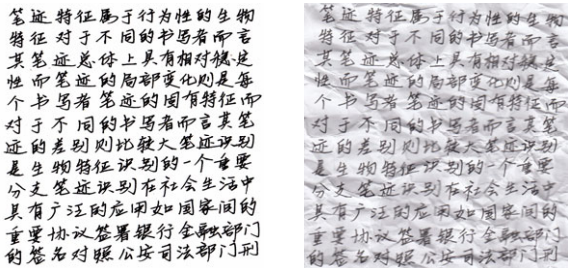 笔迹特征属于行为性的生物
特征对于不同的书写者而言
其笔迹总体上具有相对稳定
性而笔迹的局部变化则是每
个书写者笔迹的固有特征而
对于不同的书写者而言其笔
迹的差别则比较大笔迹识别
是生物特征识别的一个重要
分支笔迹识别在社会生活中
具有广泛的应用如国家间的
重要协议签署银行金融部门
的签名对照公安司法部门刑
笔迹特征属于行为性的生物
特征对于不同的书写者而言
其笔迹总体上具有相对稳定
性而笔迹的局部变化则是每
个书写者笔迹的固有特征而
对于不同的书写者而言其笔
迹的差别则比较大笔迹识别
是生物特征识别的一个重要
分支笔迹识别在社会生活中
具有广泛的应用如国家间的
重要协议签署银行金融部门
的签名对照公安司法部门刑